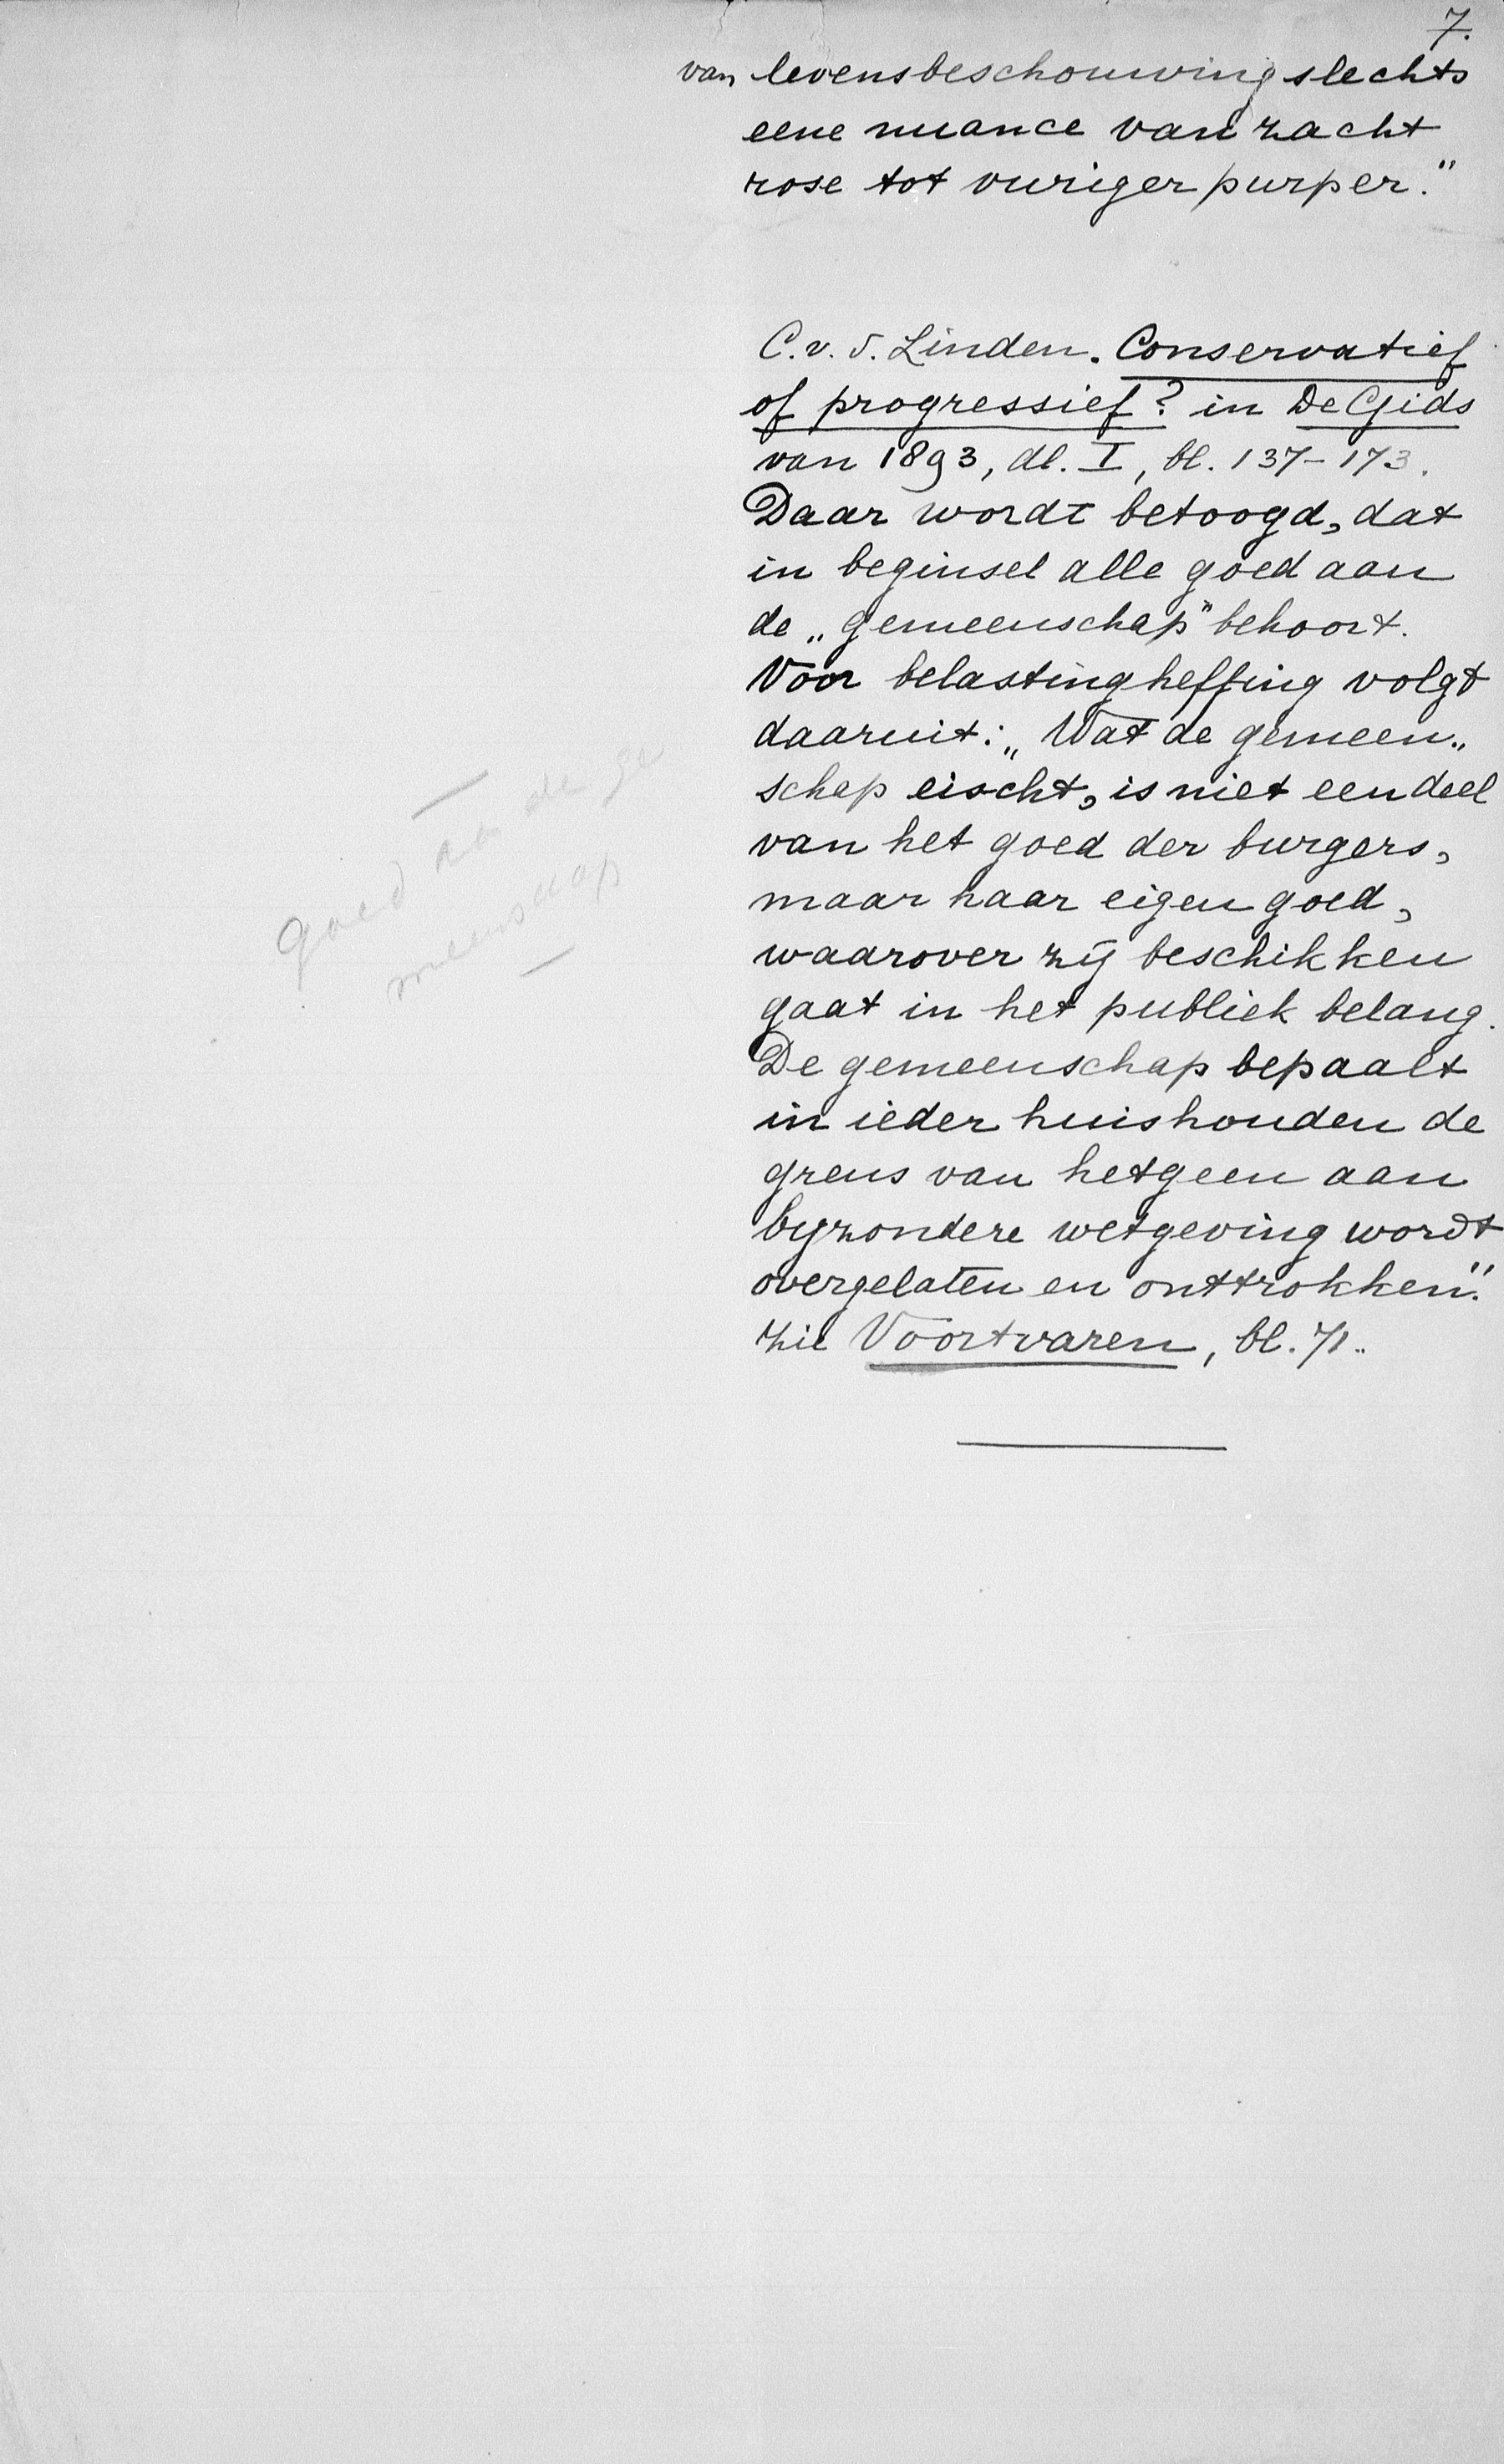 7.
van levensbeschouwing slechts
eene nuance van zacht
rose tot vuriger purper."
C. v. d. Linden. Conservatief
of progressief? in De Gids
van 1893, dl. I, bl. 137-173.
Daar wordt betoogd, dat
in beginsel alle goed aan
de „gemeenschap" behoort.
Voor belastingheffing volgt
daaruit: „Wat de gemeen„
schap eischt, is niet een deel
van het goed der burgers,
maar haar eigen goed,
waarover zij beschikken
gaat in het publiek belang.
De gemeenschap bepaalt
in ieder huishouden de
grens van hetgeen aan
bijzondere wetgeving wordt
overgelaten en onttrokken."
Zie Voortvaren, bl. 71..
goed aa de ge
meenschap